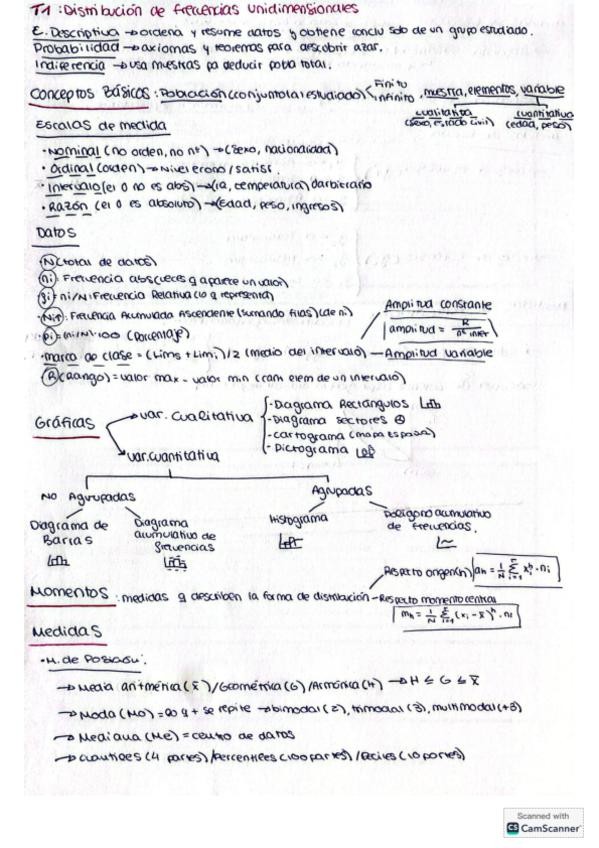 T.1: Distribución de frecuencias unidimensionales
E. Descriptiva → ordena y resume datos y obtiene conclu solo de un grupo estudiado.
Probabilidad → axiomas y teoremas para descubrir azar.
Indiferencia → usa muestras pa deducir pobla total.
Conceptos Básicos: Población (conjunto total estudiado) < Finito
infinito, muestra, elementos, variable
cualitativa (sexo, estado civil)
cuantitativa (edad, peso)
Escalas de medida
· Nominal (no orden, no nº) → (sexo, nacionalidad)
· Ordinal (orden) → Nivel / satisf.
· Intervalo (el 0 no es abs) → (temperatura)
· Razón (el 0 es absoluto) → (Edad, peso, ingresos)
Datos
N (total de datos)
ni: Frecuencia abs (veces q aparece un valor)
fi = ni/N: Frecuencia Relativa (lo q representa)
Ni↑: Frecuencia Acumulada Ascendente (sumando filas) (de ni)
pi = (ni/N)·100 (Porcentaje)
· marca de clase = (Lims + Limi)/2 (medio del intervalo) — Amplitud variable
Amplitud constante
amplitud = R / nº inter
R (Rango) = valor max - valor min (cam elem de un intervalo)
Gráficas
→ var. cualitativa
- Diagrama Rectángulos
- Diagrama sectores
- cartograma (mapa España)
- Pictograma
→ var. cuantitativa
No Agrupadas
Agrupadas
Diagrama de Barras
Diagrama acumulativo de frecuencias
Histograma
Polígono acumulativo de frecuencias.
Momentos: medidas q describen la forma de distribución
Respecto origen (h) ah = 1/N Σ xiʰ · ni
Respecto momento central
mh = 1/N Σ (xi - x̄)ʰ · ni
Medidas
· M. de Posición:
→ Media aritmética (x̄) / Geométrica (G) / Armónica (H) → H ≤ G ≤ x̄
→ Moda (Mo) = lo q + se repite → bimodal (2), trimodal (3), multimodal (+3)
→ Mediana (Me) = centro de datos
→ Cuantiles (4 partes) / Percentiles (100 partes) / Deciles (10 partes)
Scanned with
CS CamScanner